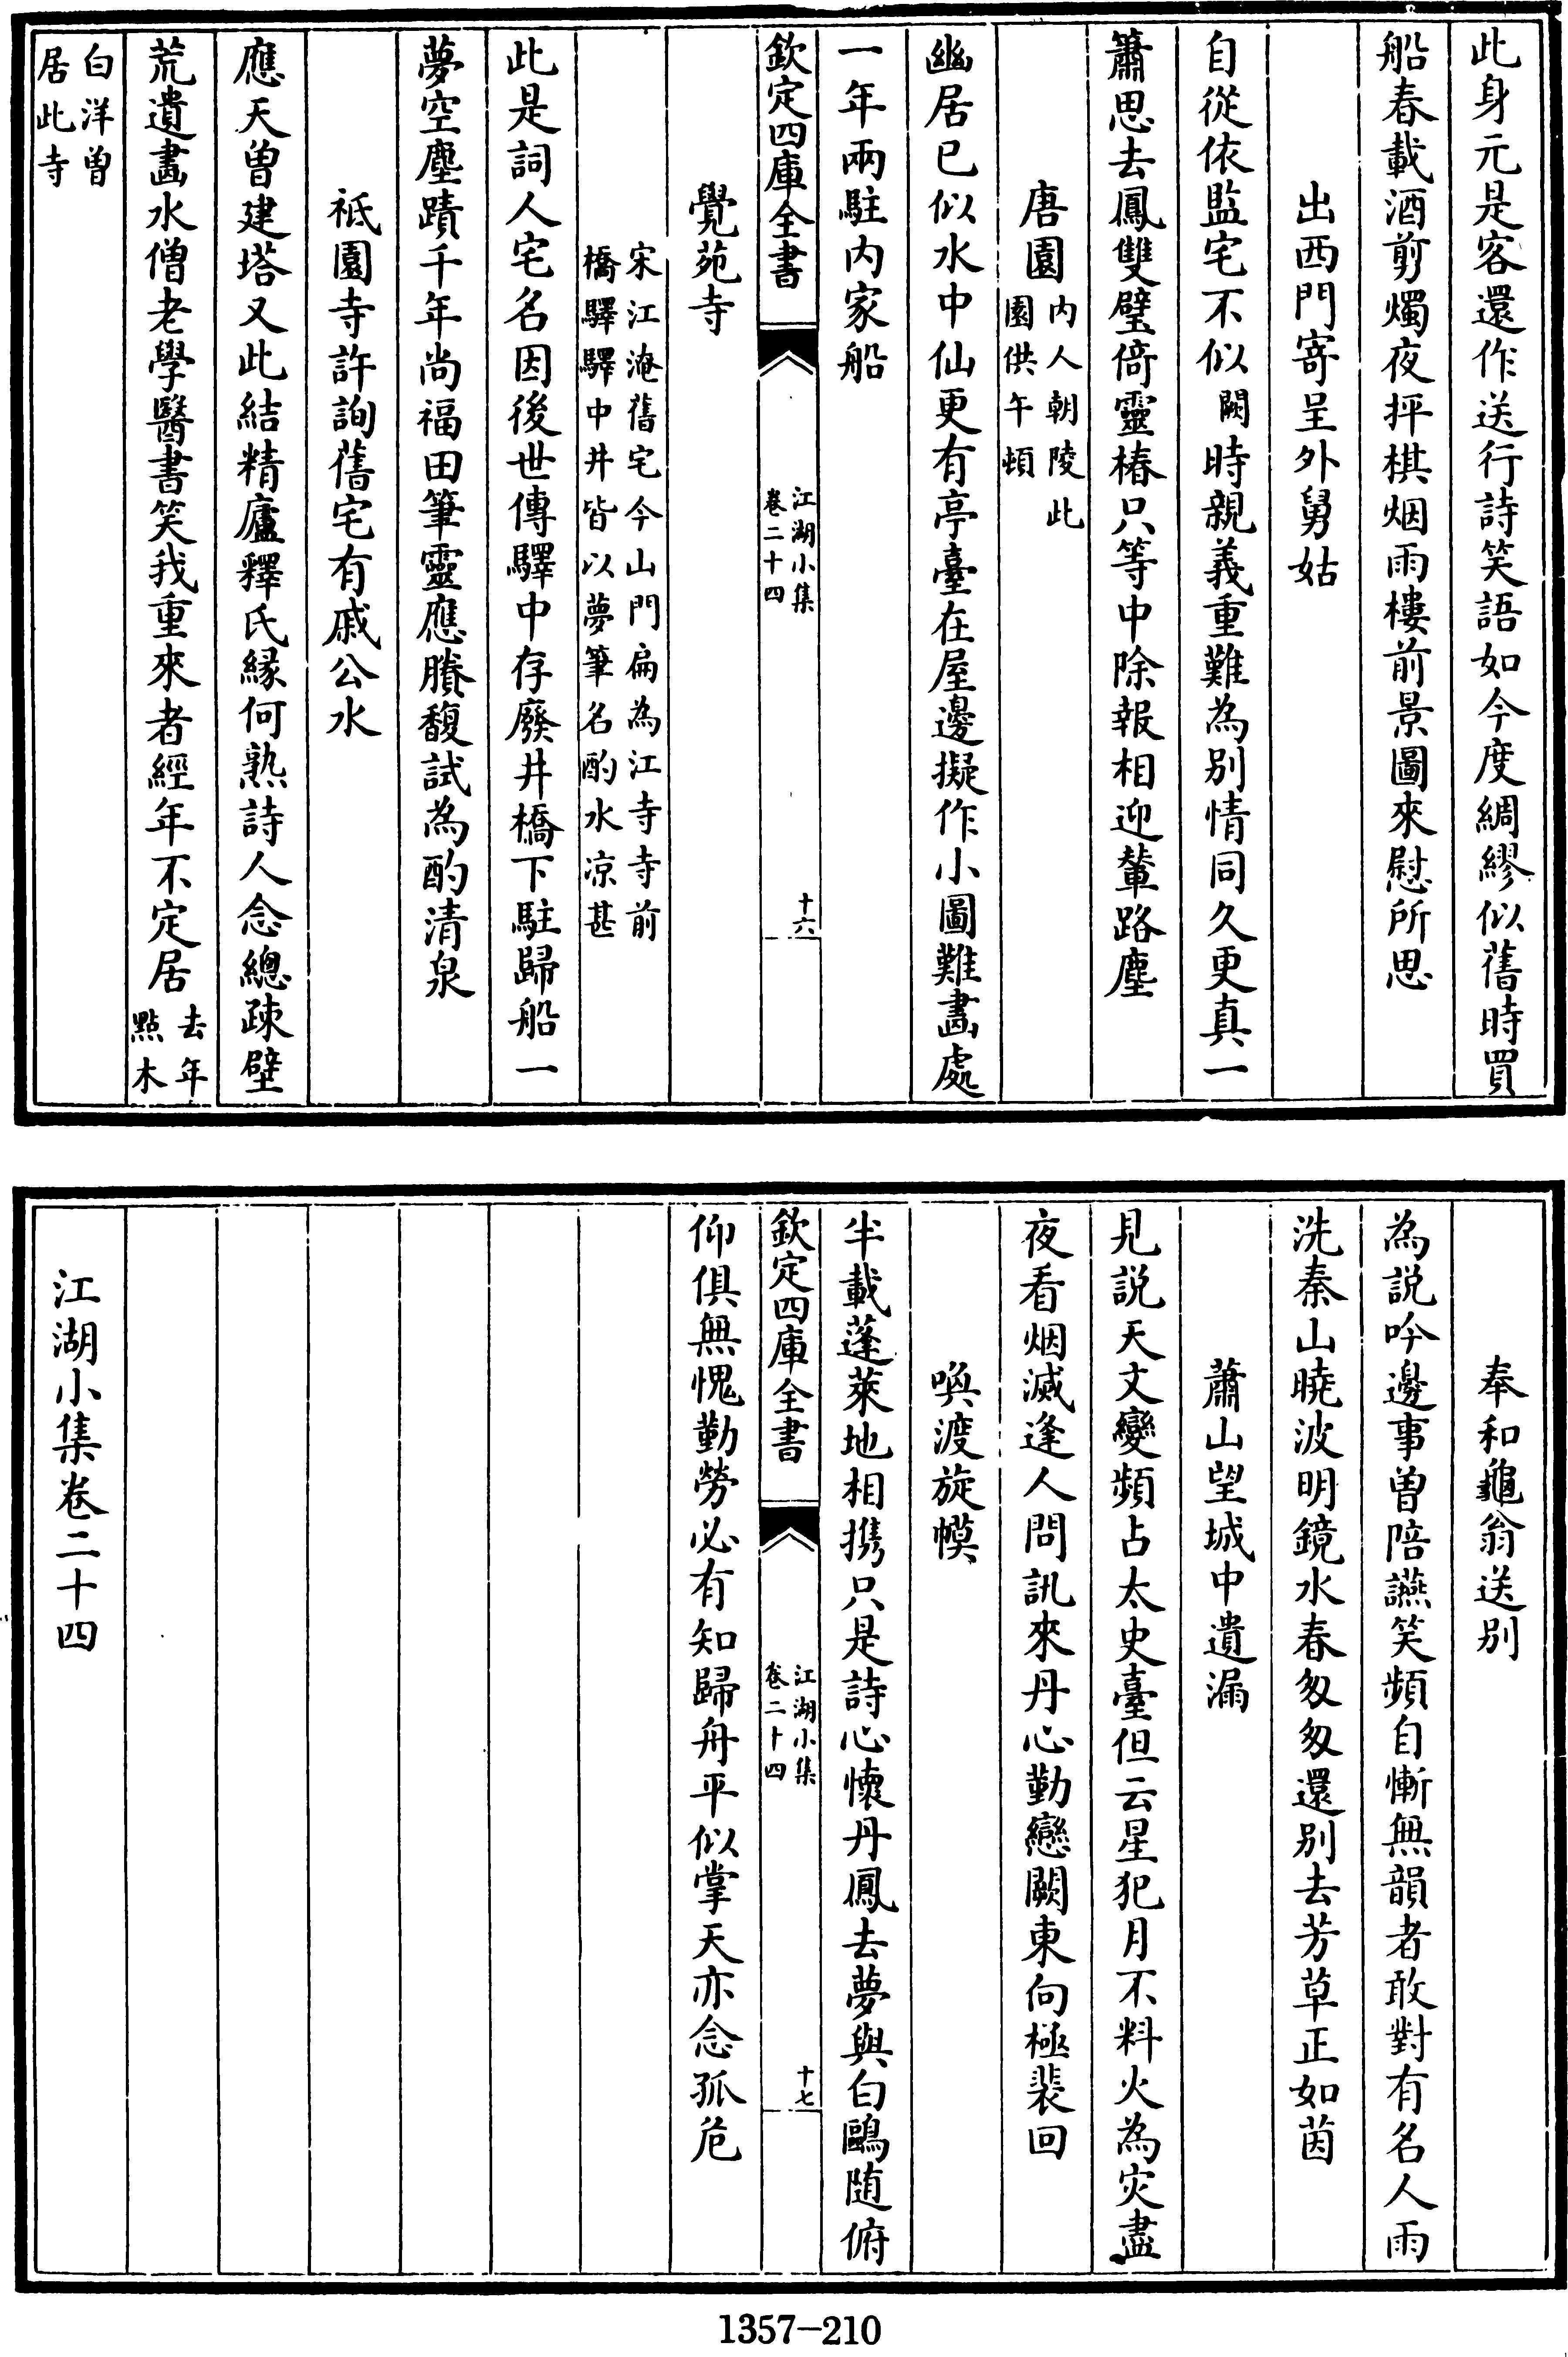 此身元是客還作送行詩笑語如今度綢繆似舊時買
船春載酒剪燭夜抨棋烟雨樓前景圖來慰所思
出西門寄呈外舅姑
自從依監宅不似闕時親義重難為别情同久更真一
簫思去鳳雙璧倚靈椿只等中除報相迎輦路塵
唐園内人朝陵此
園供午頓
幽居已似水中仙更有亭臺在屋邊擬作小圖難畫處
一年兩駐内家船
欽定四庫全書
江湖小集
卷二十四
十六
覺苑寺
宋江淹舊宅今山門扁為江寺寺前
橋驛驛中井皆以夢筆名酌水凉甚
此是詞人宅名因後世傳驛中存廢井橋下駐歸船一
夢空塵蹟千年尚福田筆靈應賸馥試為酌清泉
祇園寺許詢舊宅有戚公水
應天曾建塔又此結精廬釋氏縁何熟詩人念總疎壁
荒遺畫水僧老學醫書笑我重來者經年不定居去年
點木
白洋曾
居此寺
奉和龜翁送别
為説吟邊事曾陪讌笑頻自慚無韻者敢對有名人雨
洗秦山曉波明鏡水春匆匆還别去芳草正如茵
蕭山望城中遺漏
見説天文變頻占太史臺但云星犯月不料火為灾盡
夜看烟滅逢人問訊來丹心勤戀闕東向極裴回
喚渡旋幙
半載蓬萊地相攜只是詩心懷丹鳳去夢與白鷗随俯
欽定四庫全書
江湖小集
卷二十四
十七
仰俱無愧勤勞必有知歸舟平似掌天亦念孤危
江湖小集卷二十四
1357-210